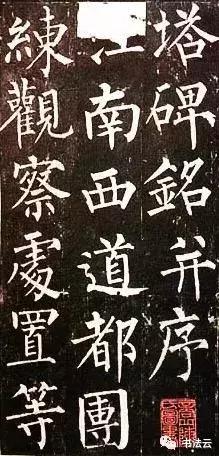 塔碑銘并序
江南西道都團
練觀察處置等
书法云